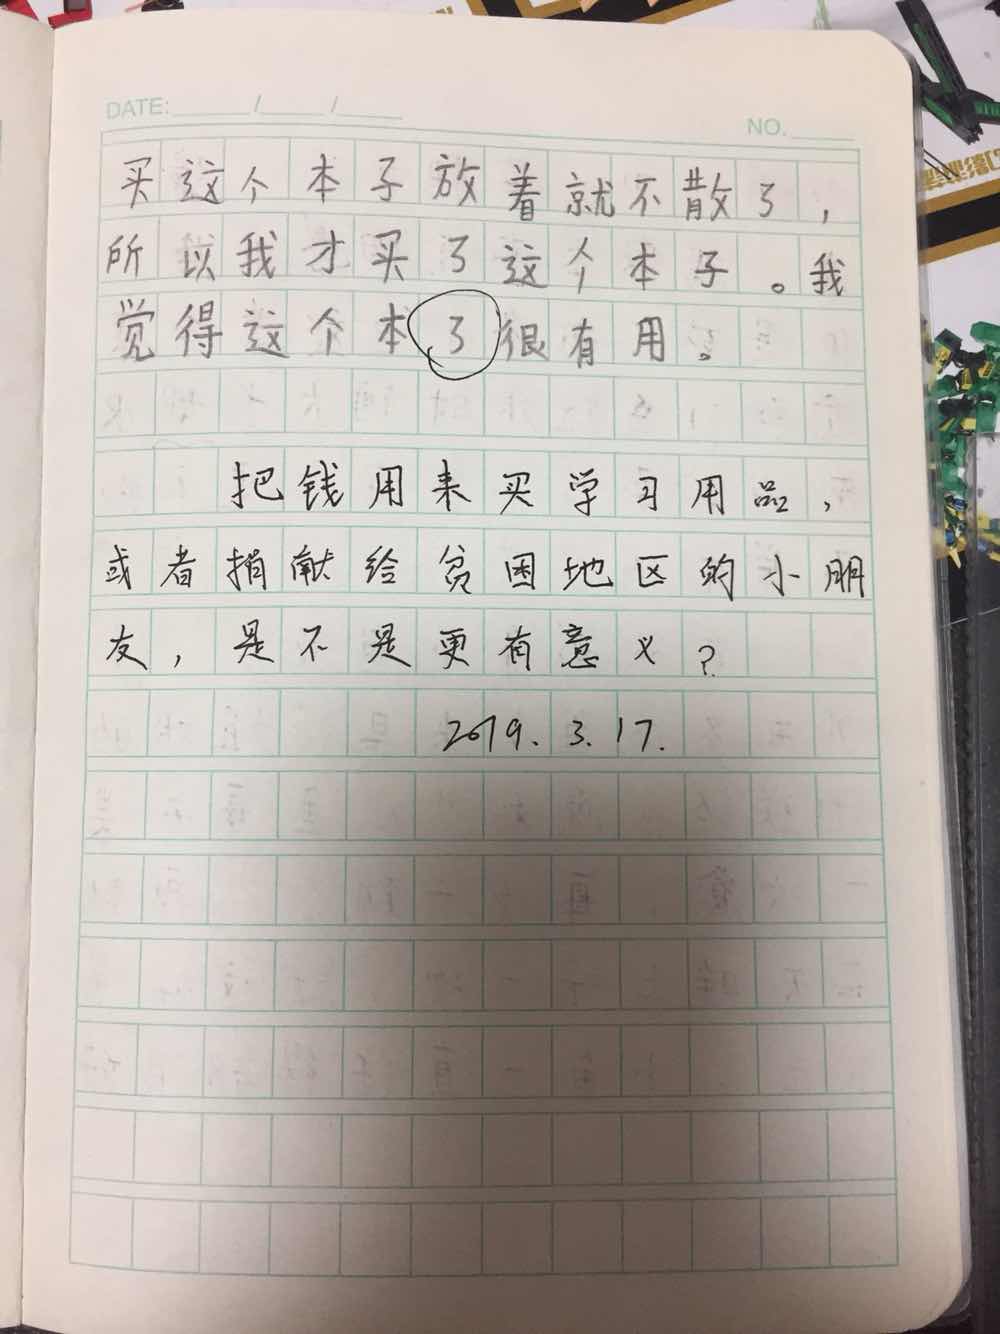 DATE: / /
NO.
买这个本子放着就不散了，
所以我才买了这个本子。我
觉得这个本了很有用。
把钱用来买学习用品，
或者捐献给贫困地区的小朋
友，是不是更有意义？
2019.3.17.